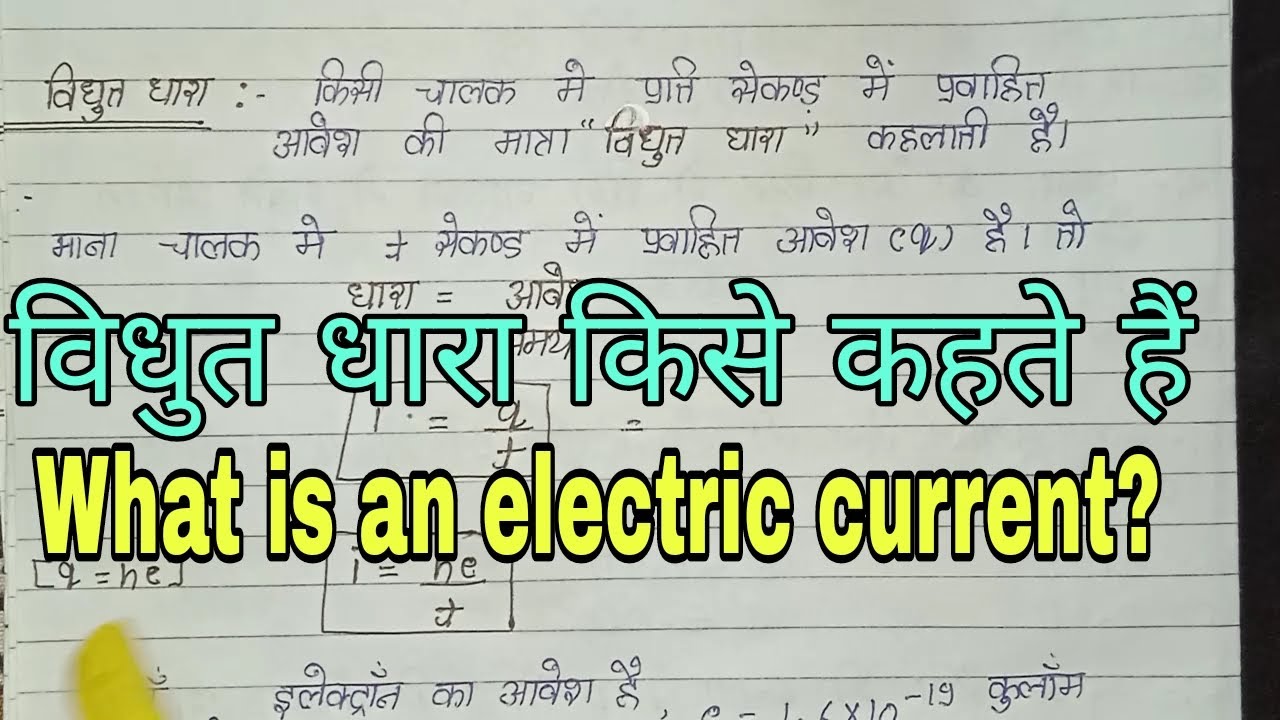 विधुत धारा :- किसी चालक मे प्रति सेकण्ड में प्रवाहित
आवेश की मात्रा "विधुत धारा" कहलाती है।
माना चालक मे t सेकण्ड में प्रवाहित आवेश (q) है। तो
धारा = 
विधुत धारा किसे कहते हैं
i = q/t =
What is an electric current?
[q = ne] i = ne/t
इलेक्ट्रॉन का आवेश है, e = 1.6×10⁻¹⁹ कुलॉम